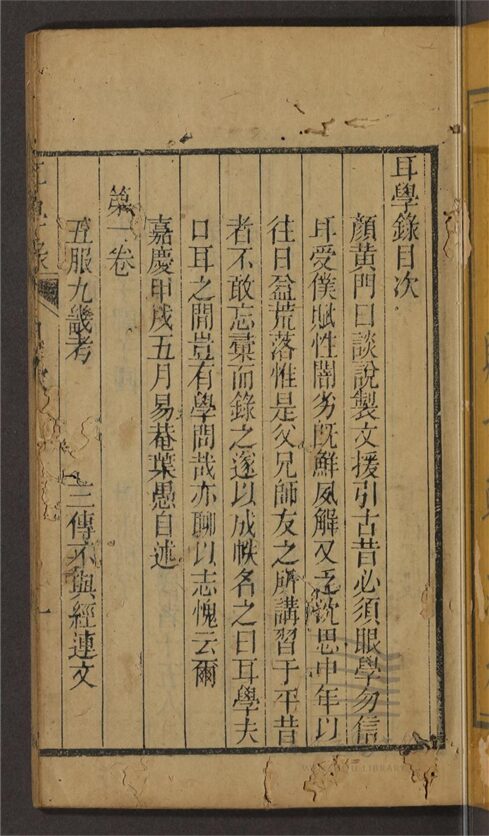 耳學錄目次
顏黃門曰談說製文援引古昔必須眼學勿信
耳受僕賦性闇劣既鮮夙解又乏沈思中年以
往日益荒落惟是父兄師友之所講習于平昔
者不敢忘彙而錄之遂以成帙名之曰耳學夫
口耳之間豈有學問哉亦聊以志愧云爾
嘉慶甲戌五月易菴葉愚自述
第一卷
五服九畿考
三傳不與經連文
一
LIBRARY